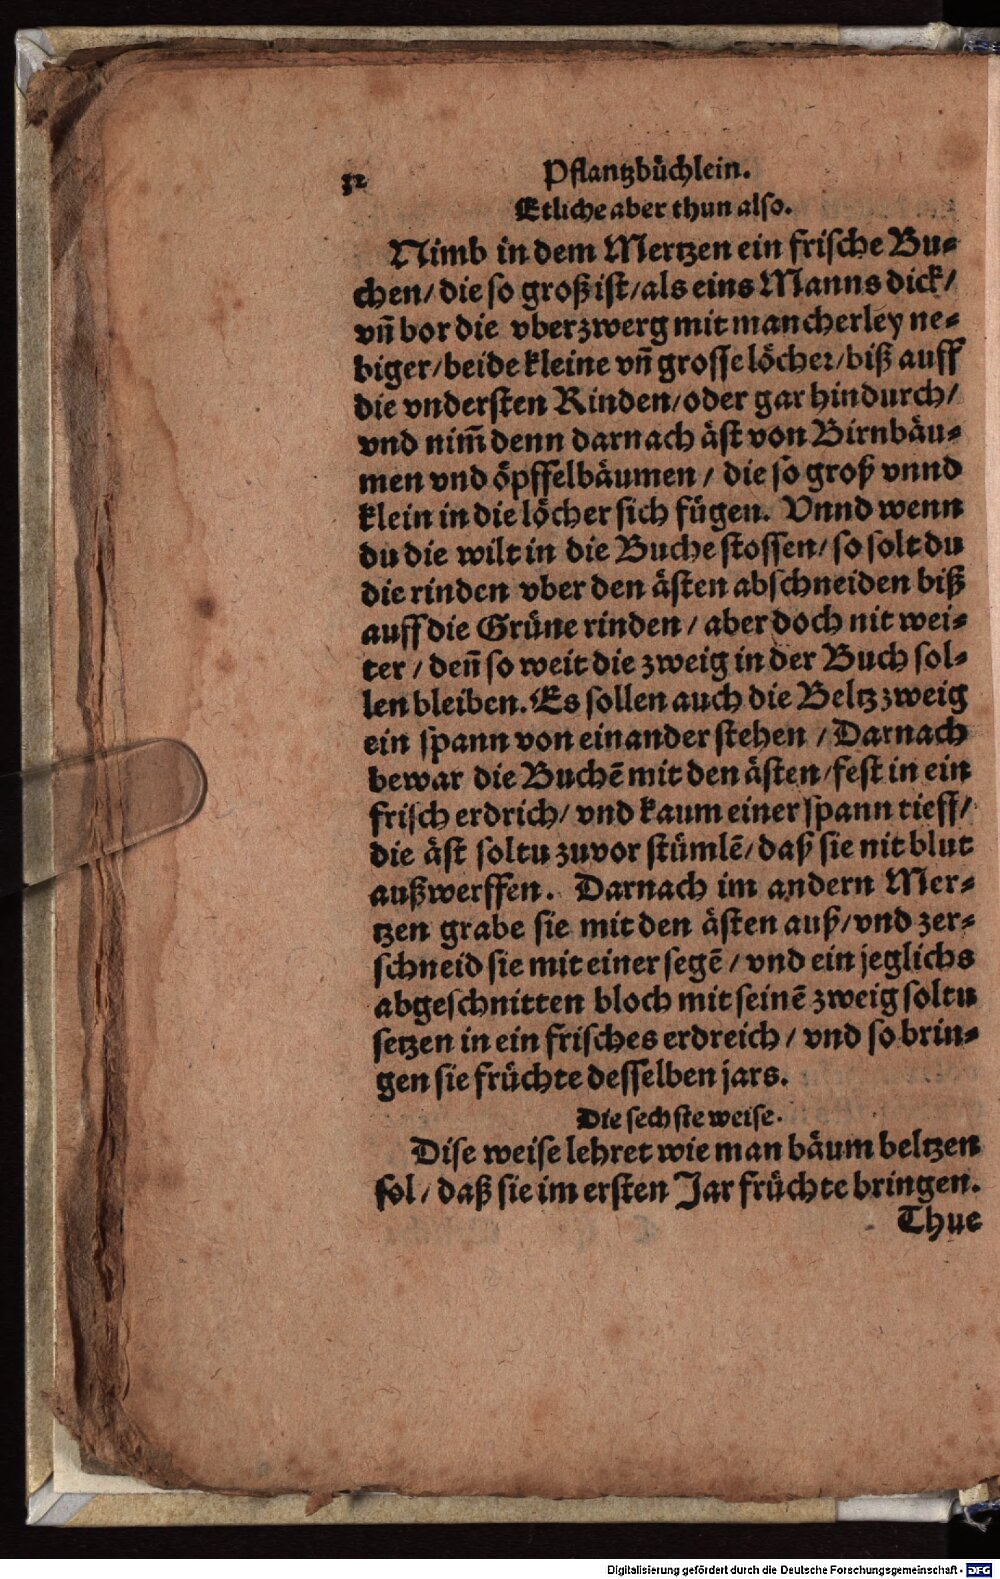 32 Pflantzbüchlein.
Etliche aber thun also.
Nimb in dem Mertzen ein frische Bu-
chen/ die so groß ist/ als eins Manns dick/
vñ bor die vberzwerg mit mancherley ne-
biger/ beide kleine vñ grosse löcher/ biß auff
die vndersten Rinden/ oder gar hindurch/
vnd nim̃ denn darnach äst von Birnbäu-
men vnd öpffelbäumen / die so groß vnnd
klein in die löcher sich fügen. Vnnd wenn
du die wilt in die Buche stossen/ so solt du
die rinden vber den ästen abschneiden biß
auff die Grüne rinden / aber doch nit wei-
ter / deñ so weit die zweig in der Buch sol-
len bleiben. Es sollen auch die Beltz zweig
ein spann von einander stehen / Darnach
bewar die Buchē mit den ästen/ fest in ein
frisch erdrich/ vnd kaum einer spann tieff/
die äst soltu zuvor stümlē/ daß sie nit blut
außwerffen. Darnach im andern Mer-
tzen grabe sie mit den ästen auß/ vnd zer-
schneid sie mit einer segē / vnd ein jeglichs
abgeschnitten bloch mit seinē zweig soltu
setzen in ein frisches erdreich / vnd so brin-
gen sie früchte desselben jars.
Die sechste weise.
Dise weise lehret wie man bäum beltzen
sol / daß sie im ersten Jar früchte bringen.
Thue
Digitalisierung gefördert durch die Deutsche Forschungsgemeinschaft - DFG